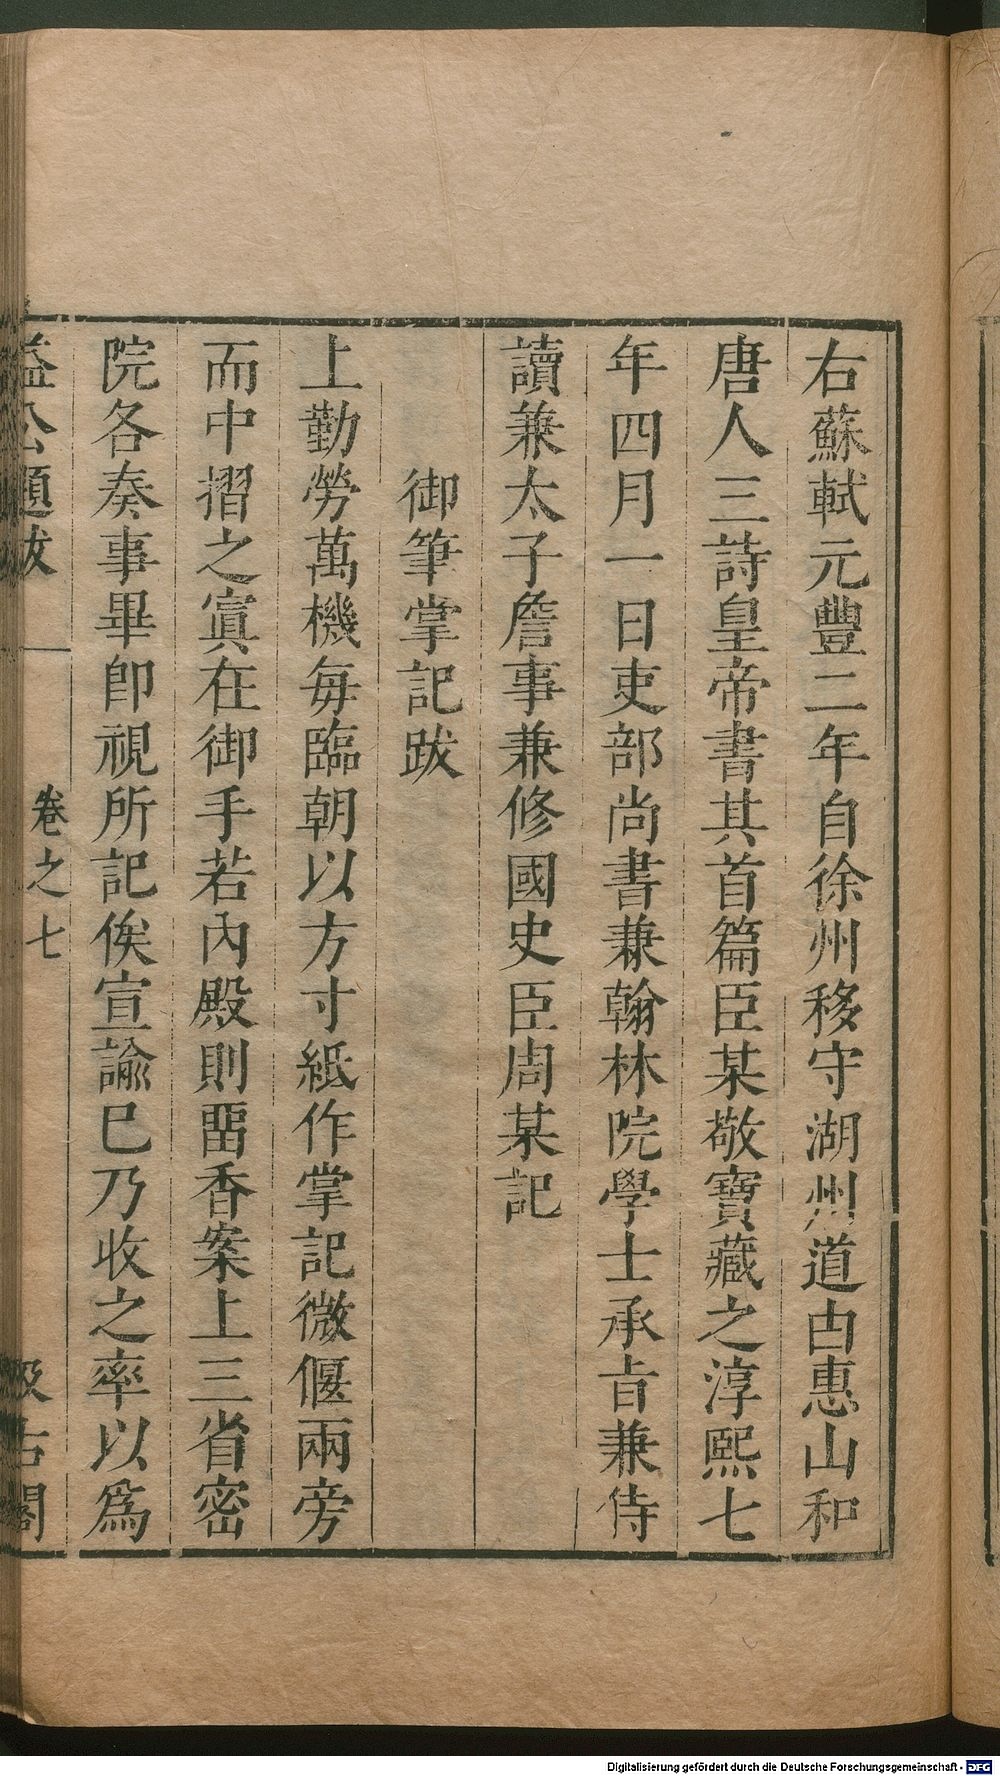 右蘇軾元豐二年自徐州移守湖州道由惠山和
唐人三詩皇帝書其首篇臣某敬寶藏之淳熙七
年四月一日吏部尚書兼翰林院學士承旨兼侍
讀兼太子詹事兼修國史臣周某記
御筆掌記跋
上勤勞萬機每臨朝以方寸紙作掌記微偃兩旁
而中摺之寘在御手若內殿則畱香案上三省密
院各奏事畢卽視所記俟宣諭巳乃收之率以爲
益公題跋 卷之七 汲古閣
Digitalisierung gefördert durch die Deutsche Forschungsgemeinschaft - DFG